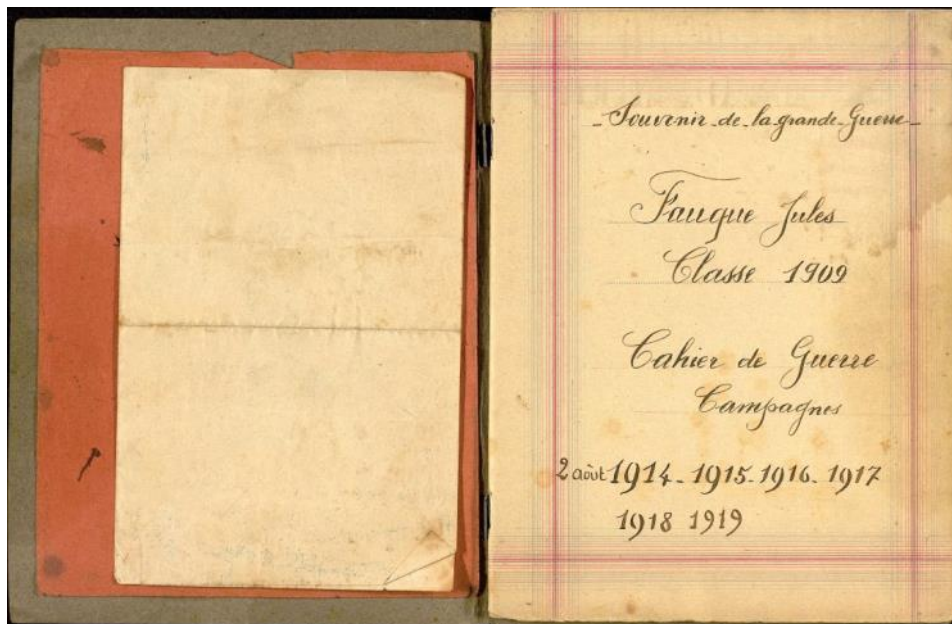 - Souvenir - de - la - grande - Guerre -
Fauque Jules
Classe 1909
Cahier de Guerre
Campagnes
2 août 1914 - 1915 - 1916 - 1917
1918 1919